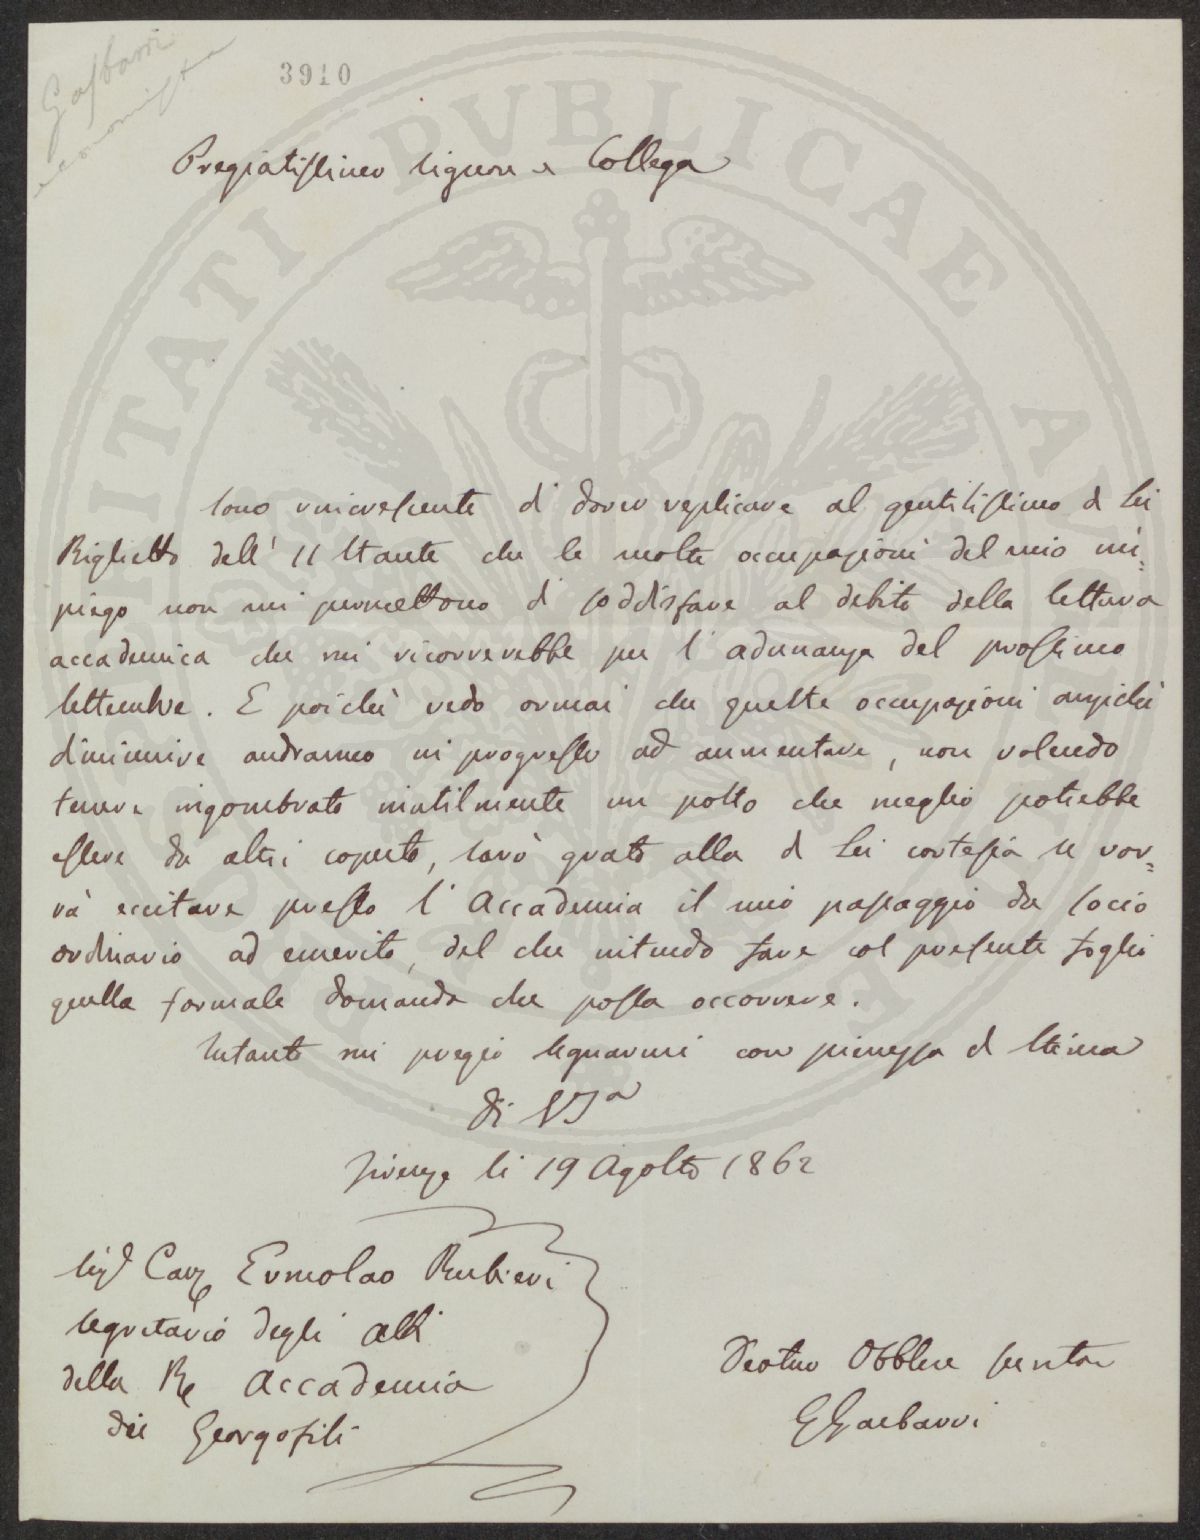 Gasbarri
economista
3910
Pregiatissimo Signore e Collega
Sono rincrescente di dover replicare al gentilissimo di Lei
Biglietto dell' 11 Stante che le molte occupazioni del mio im=
piego non mi permettono di soddisfare al debito della lettura
accademica che mi ricorrerebbe per l' adunanza del prossimo
Settembre. E poichè vedo ormai che queste occupazioni anzichè
diminuire andranno in progresso ad aumentare, non volendo
tenere ingombrato inutilmente un posto che meglio potrebbe
essere da altri coperto, sarò grato alla di Lei cortesia se vor=
rà eccitare presso l' Accademia il mio passaggio da Socio
ordinario ad emerito, del che intendo fare col presente foglio
quella formale domanda che possa occorrere.
Intanto mi pregio segnarmi con pienezza di Stima
di VSa
Firenze li 19 Agosto 1862
Sigr Cav Ermolao Rubieri
Segretario degli Atti
della Re Accademia
dei Georgofili
Devotmo Obblmo
VTILITATI PVBLICAE